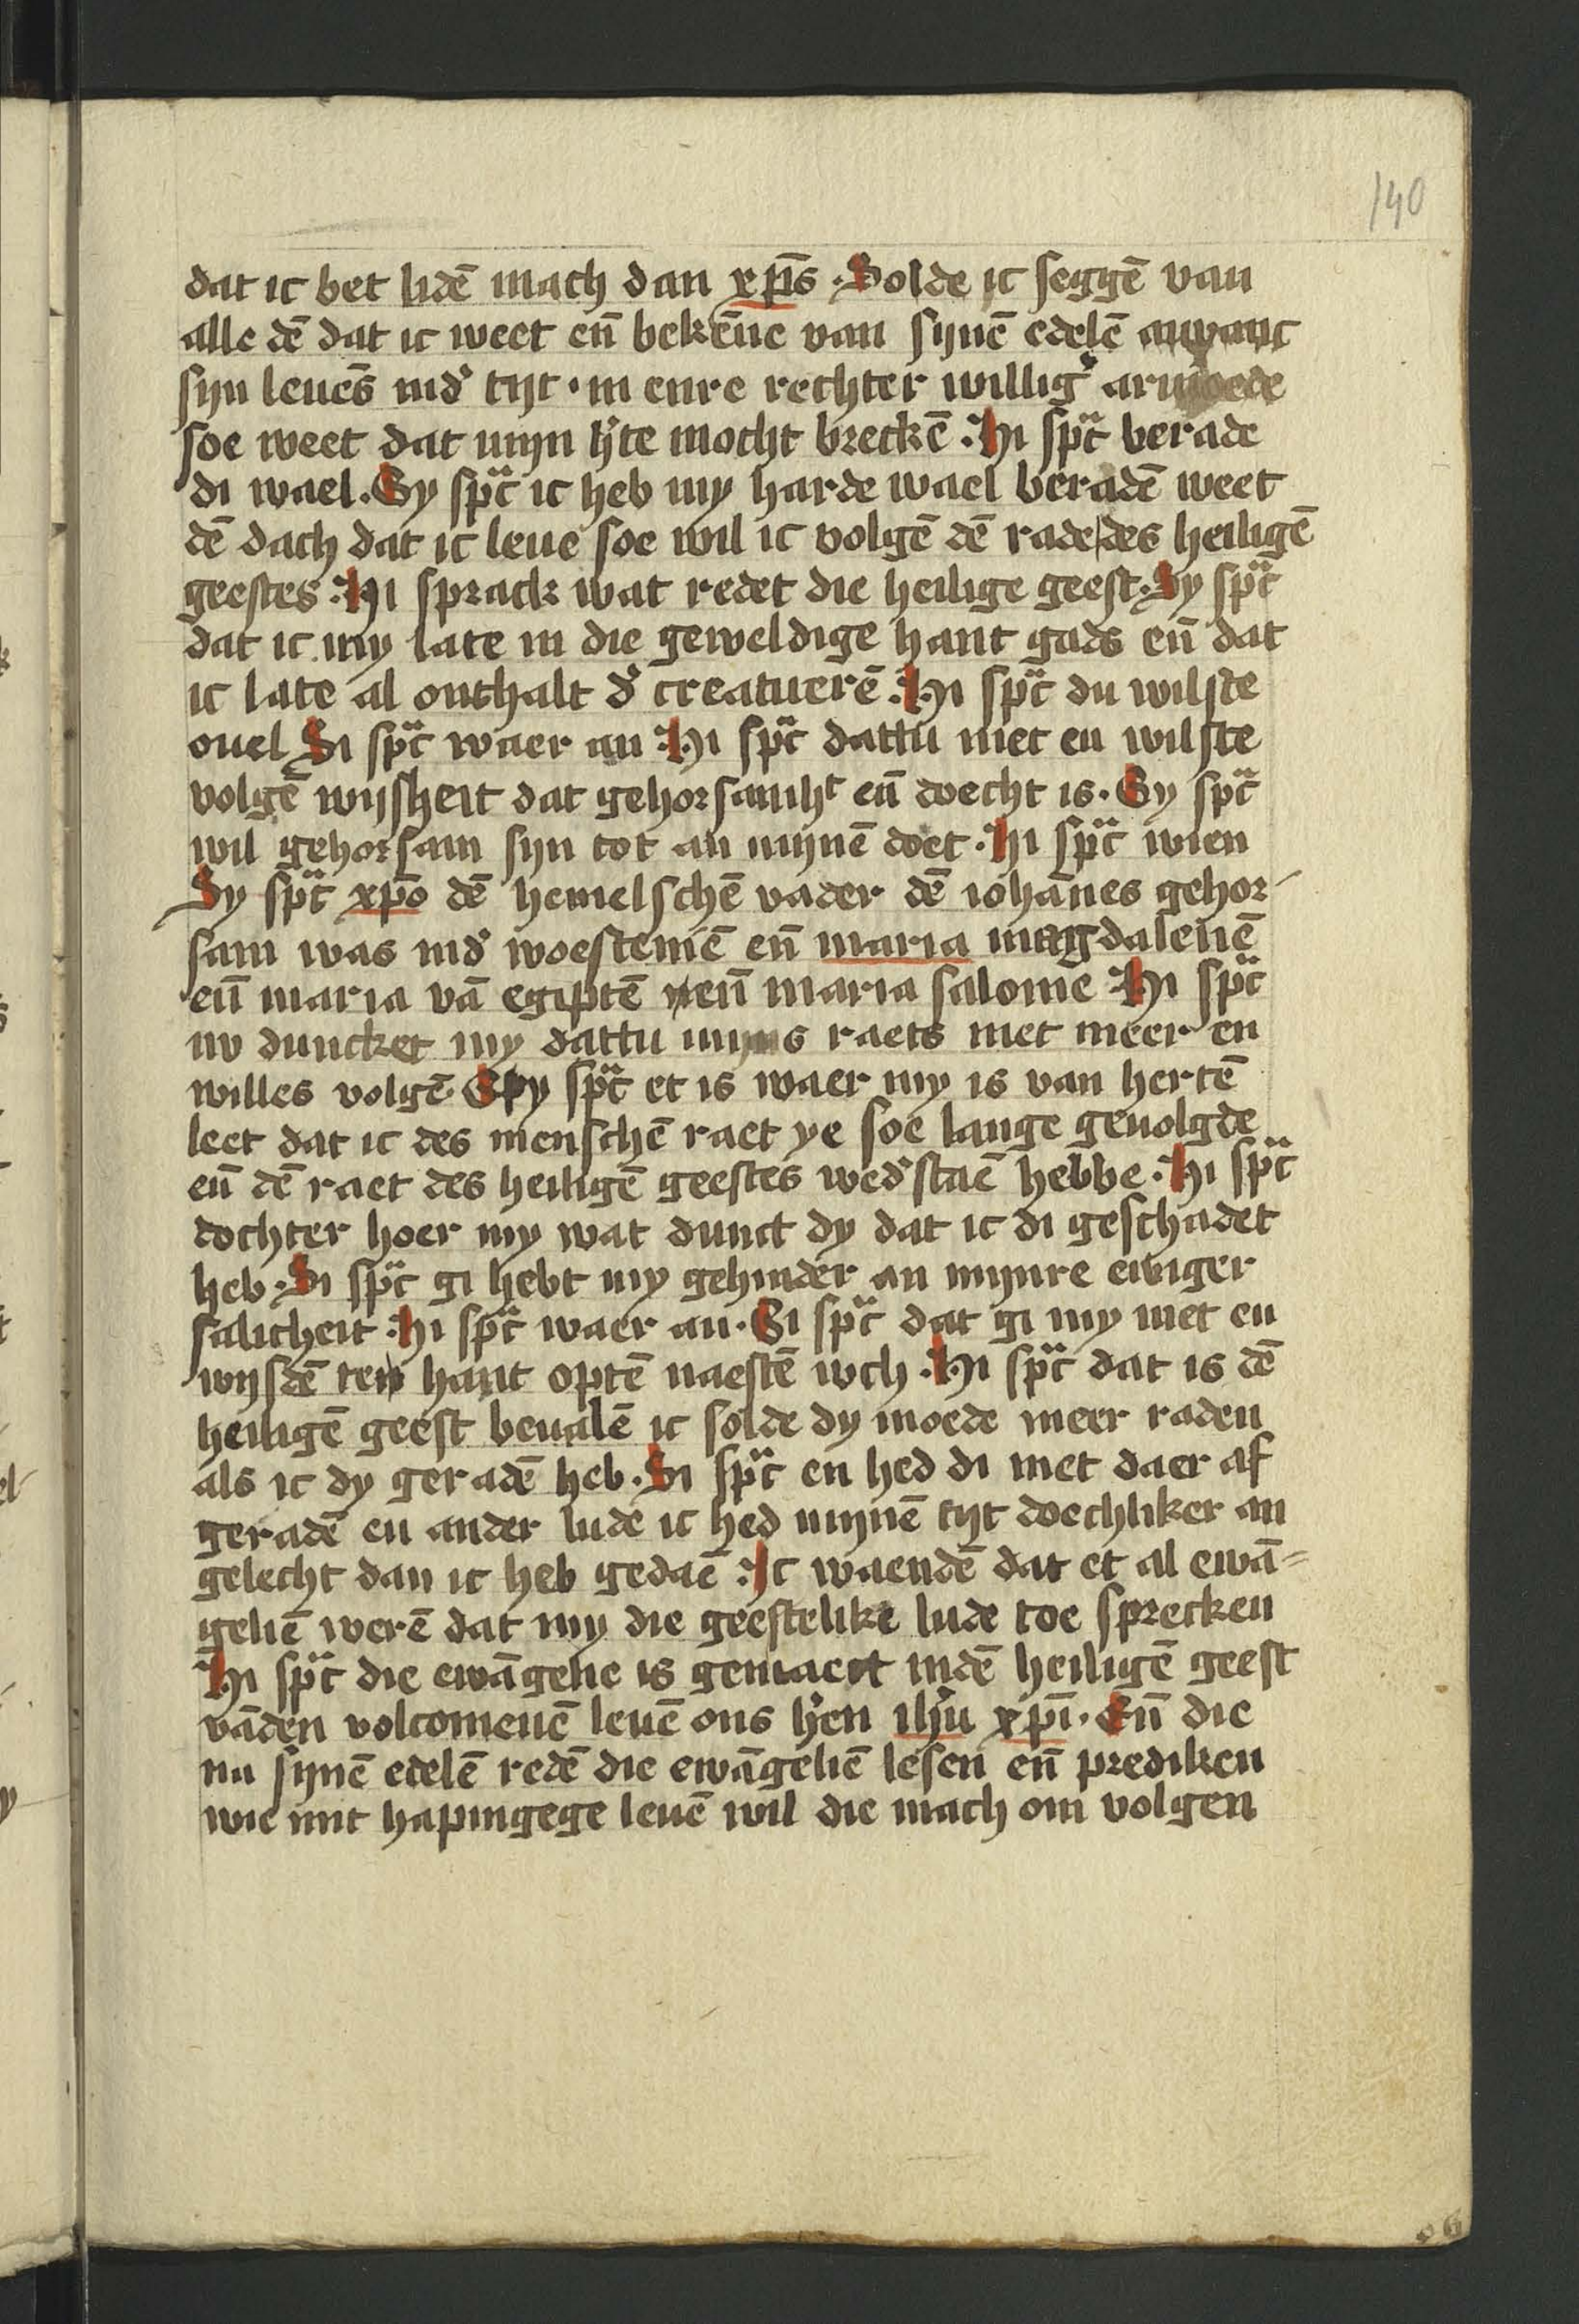 140
dat ic bet lidē mach dan xp̄s . Solde ic seggē van
alle dē dat ic weet en̄ bekēne van sijnē edelē anvanc
sijn leuēs ind' tijt . in enre rechter willig' armoede
soe weet dat mijn h'te mocht breckē . Hi spͣc berade
di wael . Sy spͣc ic heb my harde wael beradē weet
dē dach dat ic leue soe wil ic volgē dē rade des heiligē
geestes . Hi sprack wat redet die heilige geest . Sy spͣc
dat ic my late in die geweldige hant gads en̄ dat
ic late al onthalt d' creatuerē . Hi spͣc du wilste
ouel Si spͣc waer an . Hi spͣc dattu niet en wilste
volgē wijsheit dat gehorsamhͭ en̄ doecht is . Sy spͣc
wil gehorsam sijn tot an mijnē doet . Hi spͣc wien
Sy spͣc xp̄o dē hemelschē vader dē iohānes gehor-
sam was ind' woestenīe en̄ maria magdalenē
en̄ maria vā egiptē en̄ maria salome Hi spͣc
nv duncket my dattu mijns raets niet meer en
willes volgē . Sy spͣc et is waer my is van hertē
leet dat ic des menschē raet ye soe lange geuolgde
en̄ dē raet des heiligē geestes wed'staē hebbe . Hi spͣc
dochter hoer my wat dunct dy dat ic di geschadet
heb . Si spͣc gi hebt my gehinder an mijnre ewiger
salicheit . Hi spͣc waer an . Si spͣc dat gi my niet en
wijsdē ten hant optē naestē wch . Hi spͣc dat is dē
heiligē geest beualē ic solde dy moede meer raden
als ic dy geradē heb . Si spͣc en hed di niet daer af
geradē en ander lude ic hed mijnē tijt doechliker an
gelecht dan ic heb gedaē . Ic waendē dat et al ewā-
geliē werē dat my die geestelike lude toe sprecken
Hi spͣc die ewāgelie is gemaect indē heiligē geest
vāden volcomenē leuē ons h'en ihū xp̄i . En̄ die
na sijnē edelē redē die ewāgeliē lesen en̄ prediken
wie mit hapingege leuē wil die mach om volgen